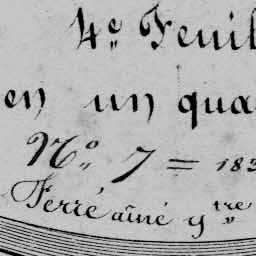 4e Feuil
en un qua
No 7 = 183
Ferré aîné ytre